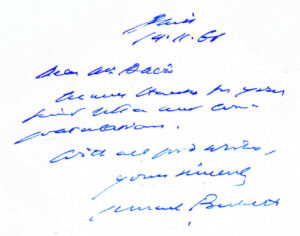 Paris
14.11.61
Dear Mr Davis
Many thanks for your
kind letter and con-
gratulations.
With all good wishes,
yours sincerely
Samuel Beckett